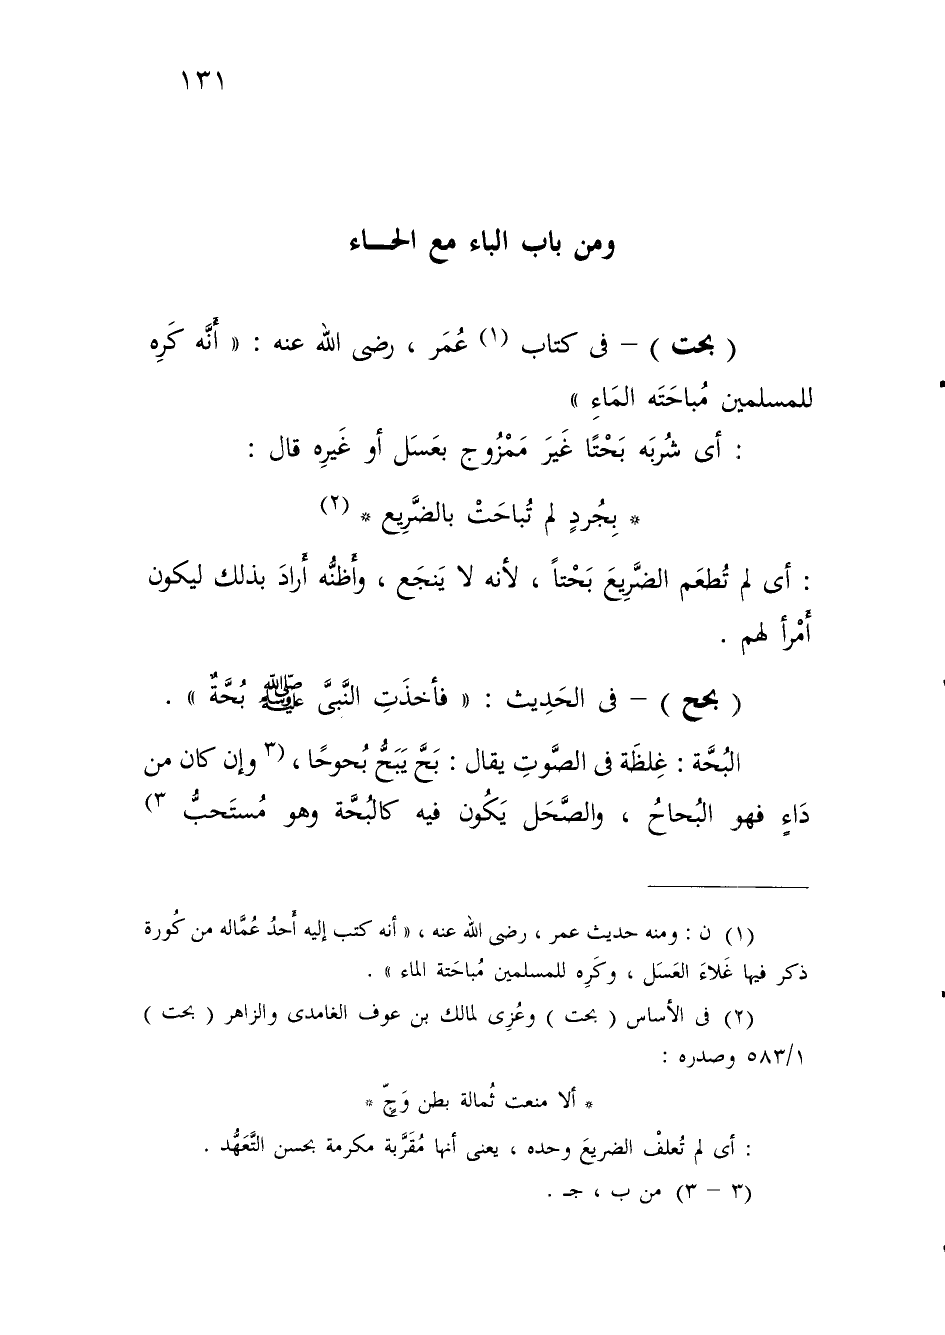 ١٣١
ومن باب الباء مع الحـــاء
( بحت ) – فى كتاب (١) عُمَر ، رضى الله عنه : « أَنَّه كَرِه
للمسلمين مُباحَتَه المَاءِ »
: أى شُربَه بَحْتًا غَيرَ مَمْزُوج بعَسَل أو غَيرِه قال :
* بِجُردٍ لم تُباحَتْ بالضَّرِيع * (٢)
: أى لم تُطعَم الضَّرِيعَ بَحْتاً ، لأنه لا يَنجَع ، وأَظنُّه أَرادَ بذلك ليكون
أَمْرأ لهم .
( بحح ) – فى الحَدِيث : « فأخذَتِ النَّبىَّ ﷺ بُحَّةٌ » .
البُحَّة : غِلظَة فى الصَّوتِ يقال : بَحَّ يَبَحُّ بُحوحًا ، (٣ وإن كان من
دَاءٍ فهو البُحاحُ ، والصَّحَل يَكُون فيه كالبُحَّة وهو مُستَحبُّ ٣)
(١) ن : ومنه حديث عمر ، رضى الله عنه ، « أنه كتب إليه أَحدُ عُمَّاله من كُورة
ذكر فيها غَلاءَ العَسَل ، وكَرِه للمسلمين مُباحَتة الماء » .
(٢) فى الأساس ( بحت ) وعُزِى لمالك بن عوف الغامدى والزاهر ( بحت )
٥٨٣/١ وصدره :
* ألا منعت ثُمالة بطن وَجٍّ *
: أى لم تُعلفْ الضريعَ وحده ، يعنى أنها مُقَرَّبة مكرمة بحسن التَّعَهُّد .
(٣ – ٣) من ب ، جـ .